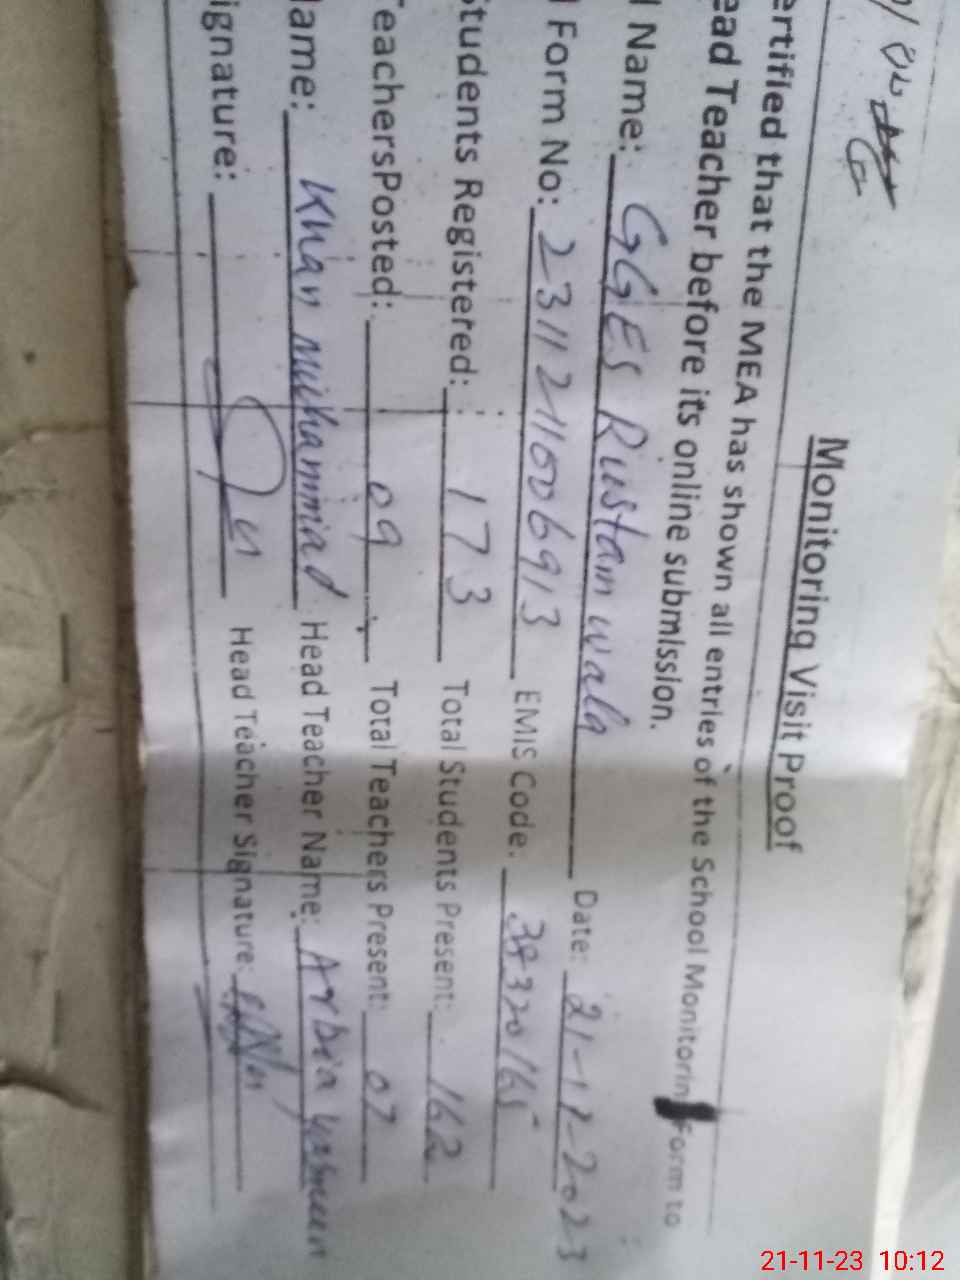 Monitoring Visit Proof
ertified that the MEA has shown all entries of the School Monitorin Form to
ead Teacher before its online submission.
l Name: GGES Rustam wala Date: 21-11-2023
l Form No: 2311211006913 EMIS Code: 38320165
Students Registered: 173 Total Students Present: 162
TeachersPosted: 09 Total Teachers Present: 07
Name: Khan muhammad Head Teacher Name: Arbia yasmeen
ignature: Head Teacher Signature:
21-11-23 10:12